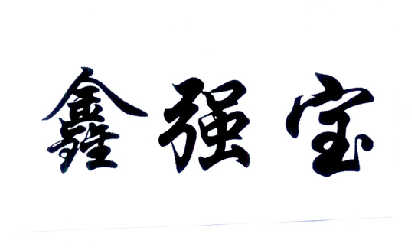 鑫强宝